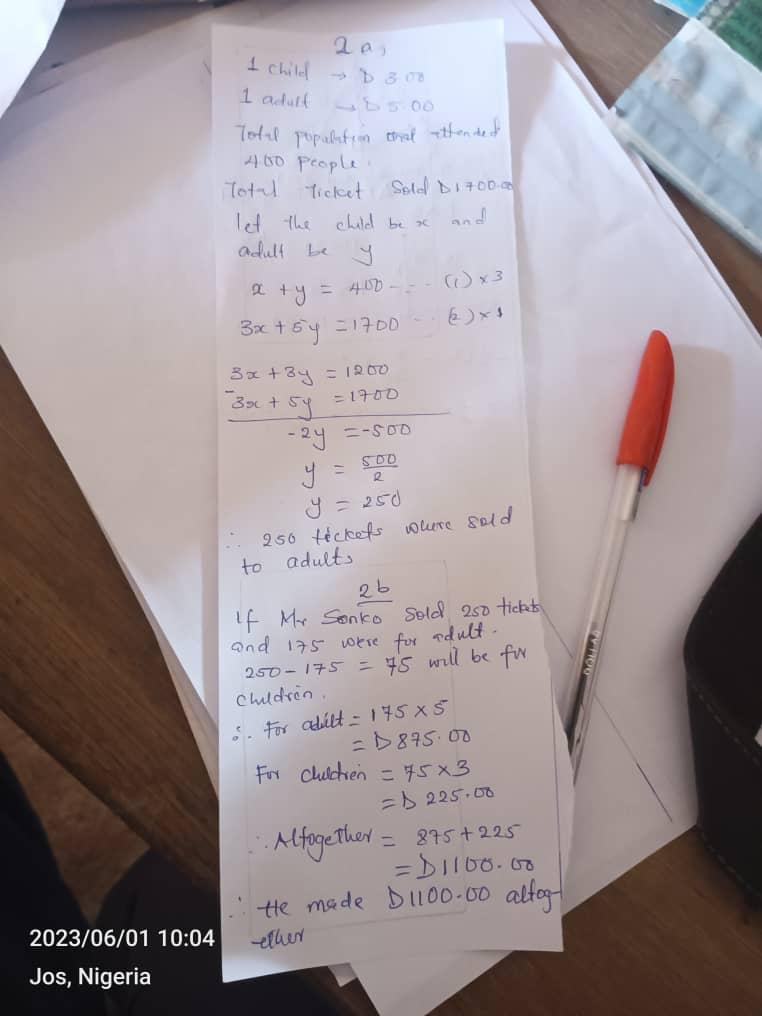 2a,
1 child → D 3.00
1 adult → D 5.00
Total population that attended
400 people.
Total Ticket Sold D1700.00
let the child be x and
adult be y
x + y = 400 --- (1) x 3
3x + 5y = 1700 -- (2) x 1
3x + 3y = 1200
- 3x + 5y = 1700
-2y = -500
y = 500/2
y = 250
∴ 250 tickets where sold
to adults
2b
If Mr Sonko Sold 250 tickets
and 175 were for adult.
250 - 175 = 75 will be for
children.
∴ For adult = 175 x 5
= D875.00
For children = 75 x 3
= D 225.00
∴ Altogether = 875 + 225
= D1100.00
∴ He made D1100.00 altog-
ether
2023/06/01 10:04
Jos, Nigeria